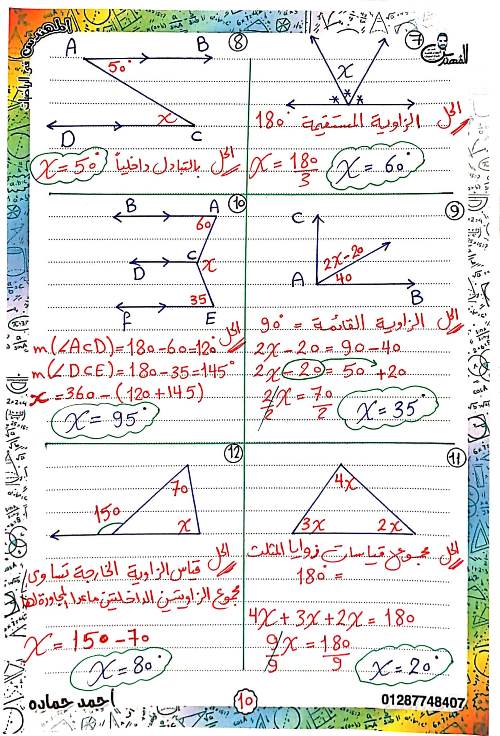 المهندس فى الرياضيات
المهندس
٧
x
* * *
الحل الزاوية المستقيمة 180°
x = 180/3
x = 60°
٨
A B
50°
x
D C
الحل بالتبادل داخلياً
x = 50°
٩
C
2x-20
40
A B
الحل الزاوية القائمة = 90°
2x - 20 = 90 - 40
2x - 20 = 50 + 20
2/2 x = 70/2
x = 35°
١٠
B A
60
D C x
35
F E
الحل
m(∠ACD) = 180 - 60 = 120°
m(∠DCE) = 180 - 35 = 145°
x = 360 - (120 + 145)
x = 95°
١١
4x
3x 2x
الحل مجموع قياسات زوايا المثلث
= 180°
4x + 3x + 2x = 180
9/9 x = 180/9
x = 20°
١٢
70
150
x
الحل قياس الزاوية الخارجة تساوى
مجموع الزاويتين الداخلتين ماعدا المجاورة لها
x = 150 - 70
x = 80°
احمد حماده
10
01287748407